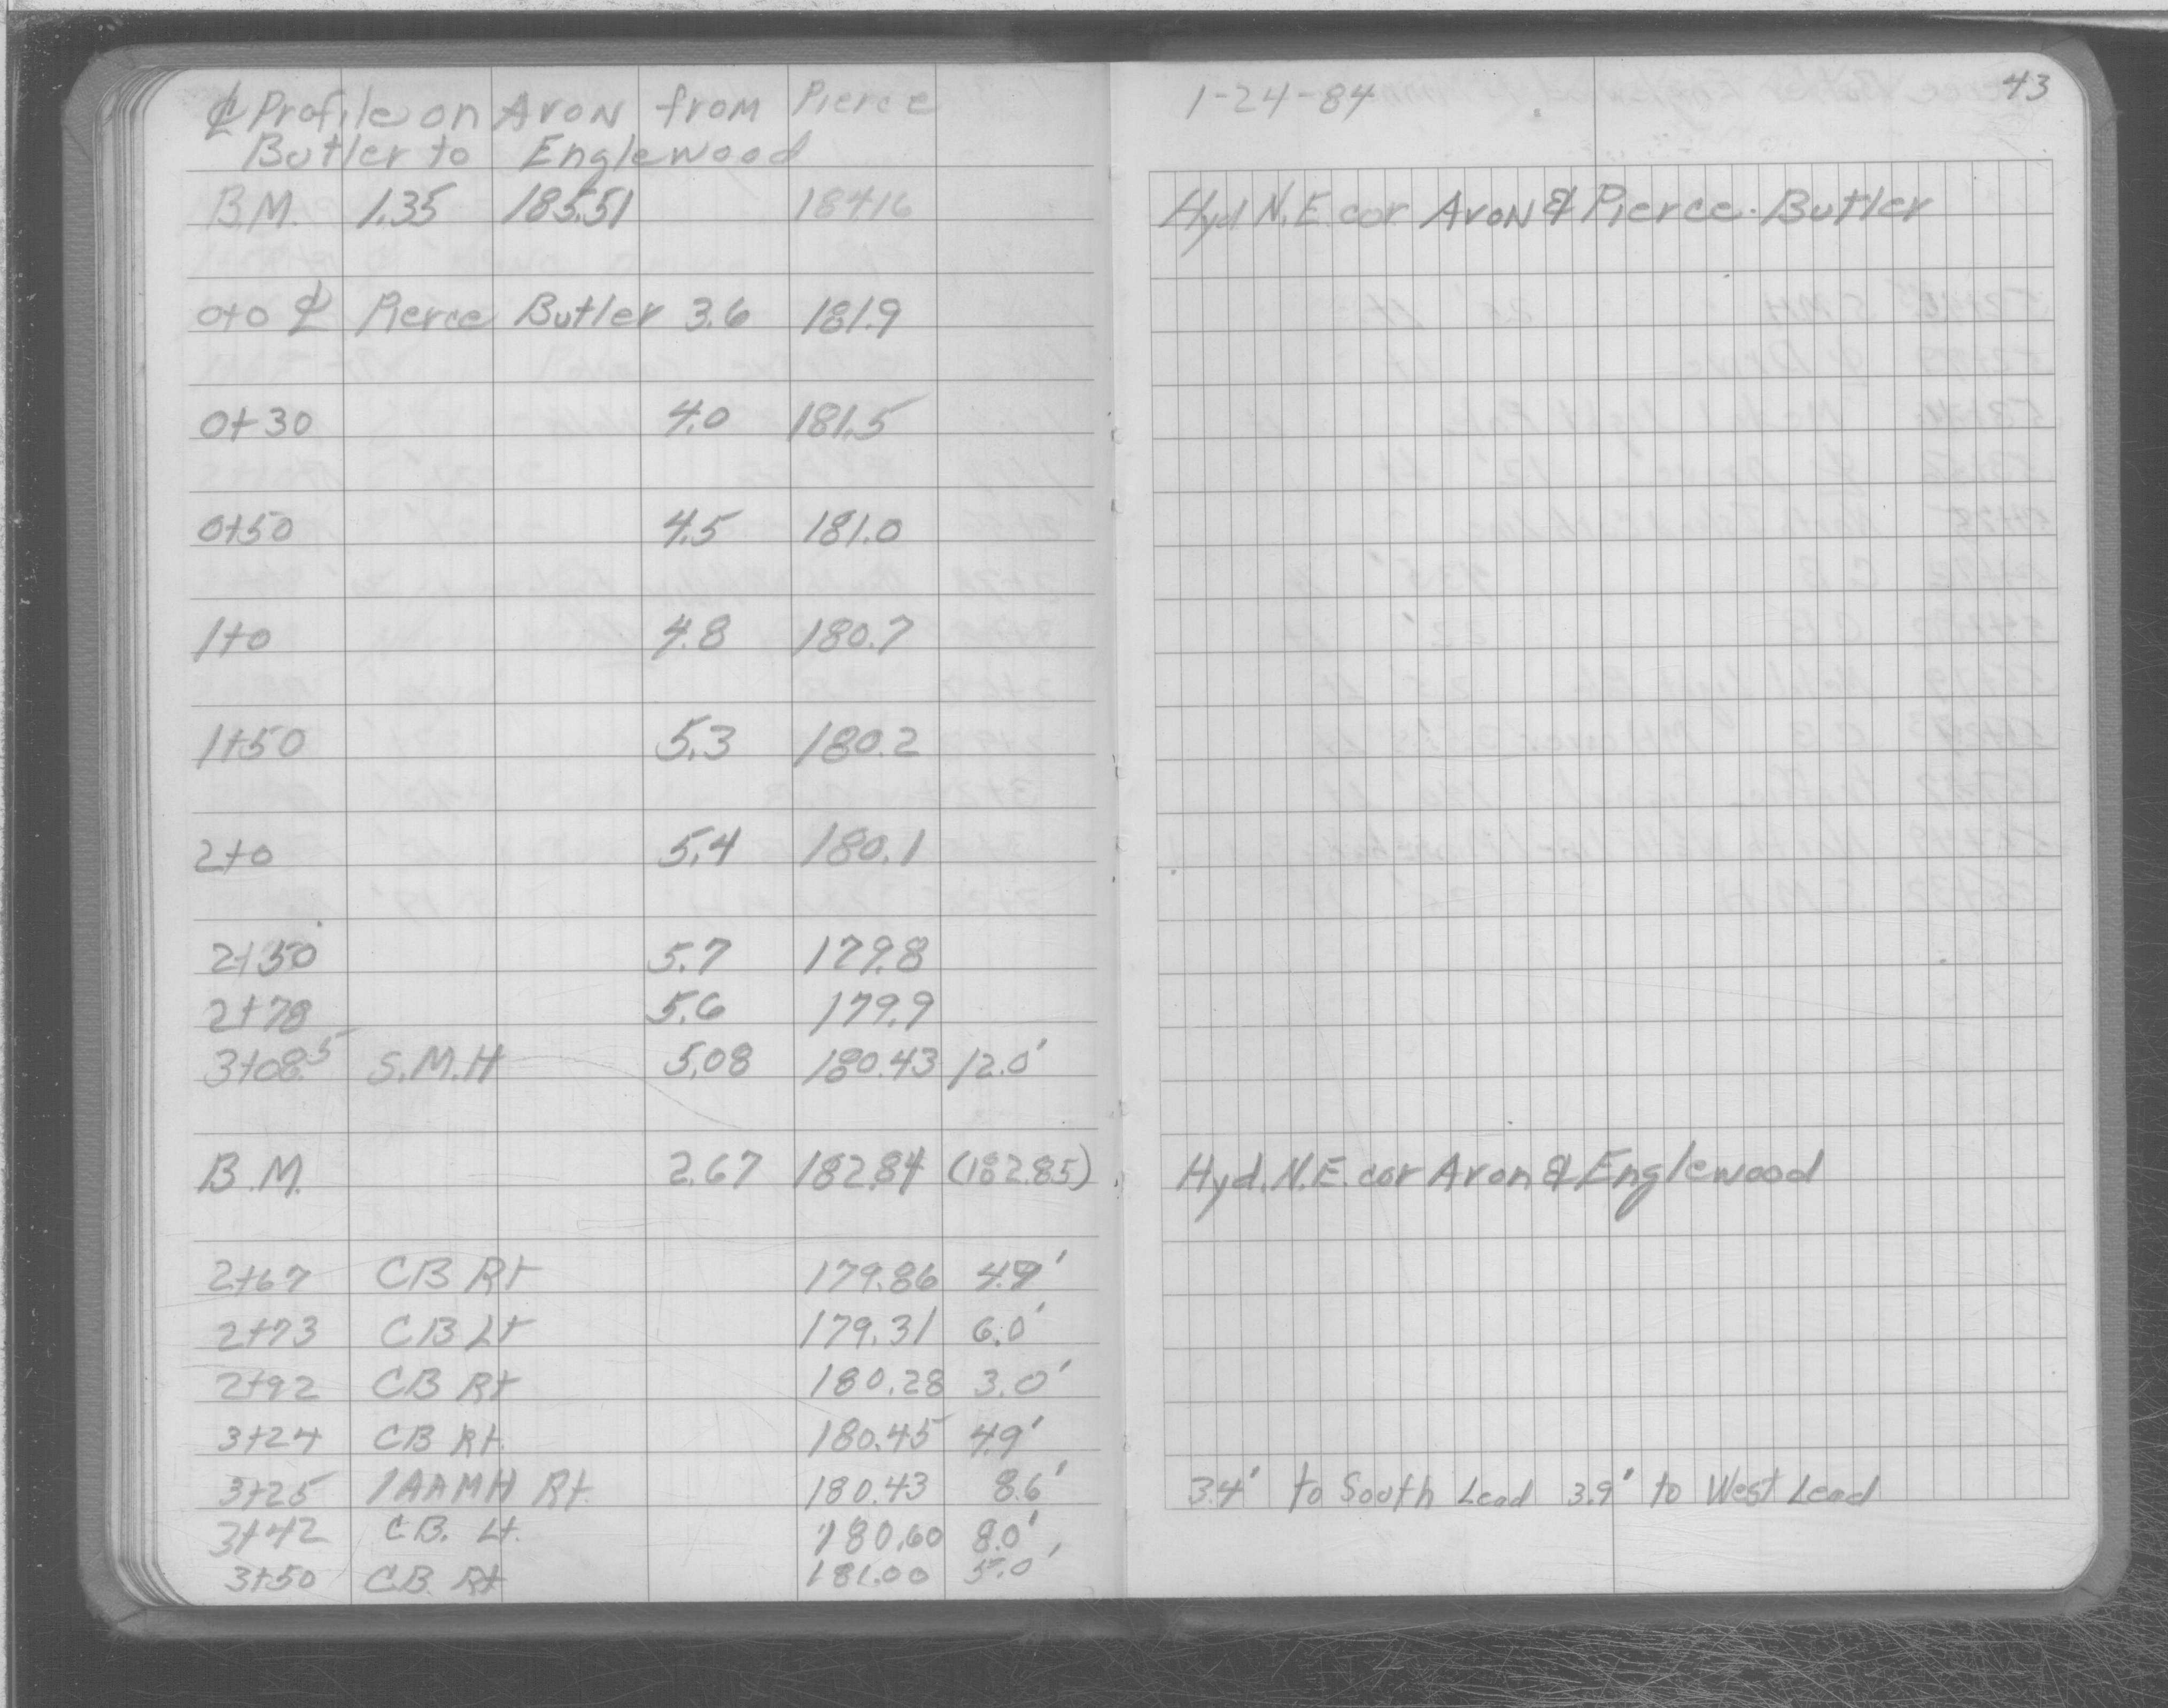 ℄ Profile on Avon from Pierce
Butler to Englewood
B.M. 1.35 185.51 184.16
0+0 ℄ Pierce Butler 3.6 181.9
0+30 4.0 181.5
0+50 4.5 181.0
1+0 4.8 180.7
1+50 5.3 180.2
2+0 5.4 180.1
2+50 5.7 179.8
2+78 5.6 179.9
3+08.5 S.M.H 5.08 180.43 12.0'
B.M. 2.67 182.84 (182.85)
2+67 CB Rt 179.86
2+73 CB Lt 179.31 6.0'
2+92 CB Rt 180.28 3.0'
3+24 CB Rt. 180.45 4.9'
3+25 MH Rt. 180.43 8.6'
3+42 C.B. Lt. 180.60 8.0'
3+50 C.B. Rt 181.00 5.0'
1-24-84 43
Hyd N.E. cor Avon & Pierce-Butler
Hyd. N.E. cor Avon & Englewood
3.4' to South Lead 3.9' to West Lead